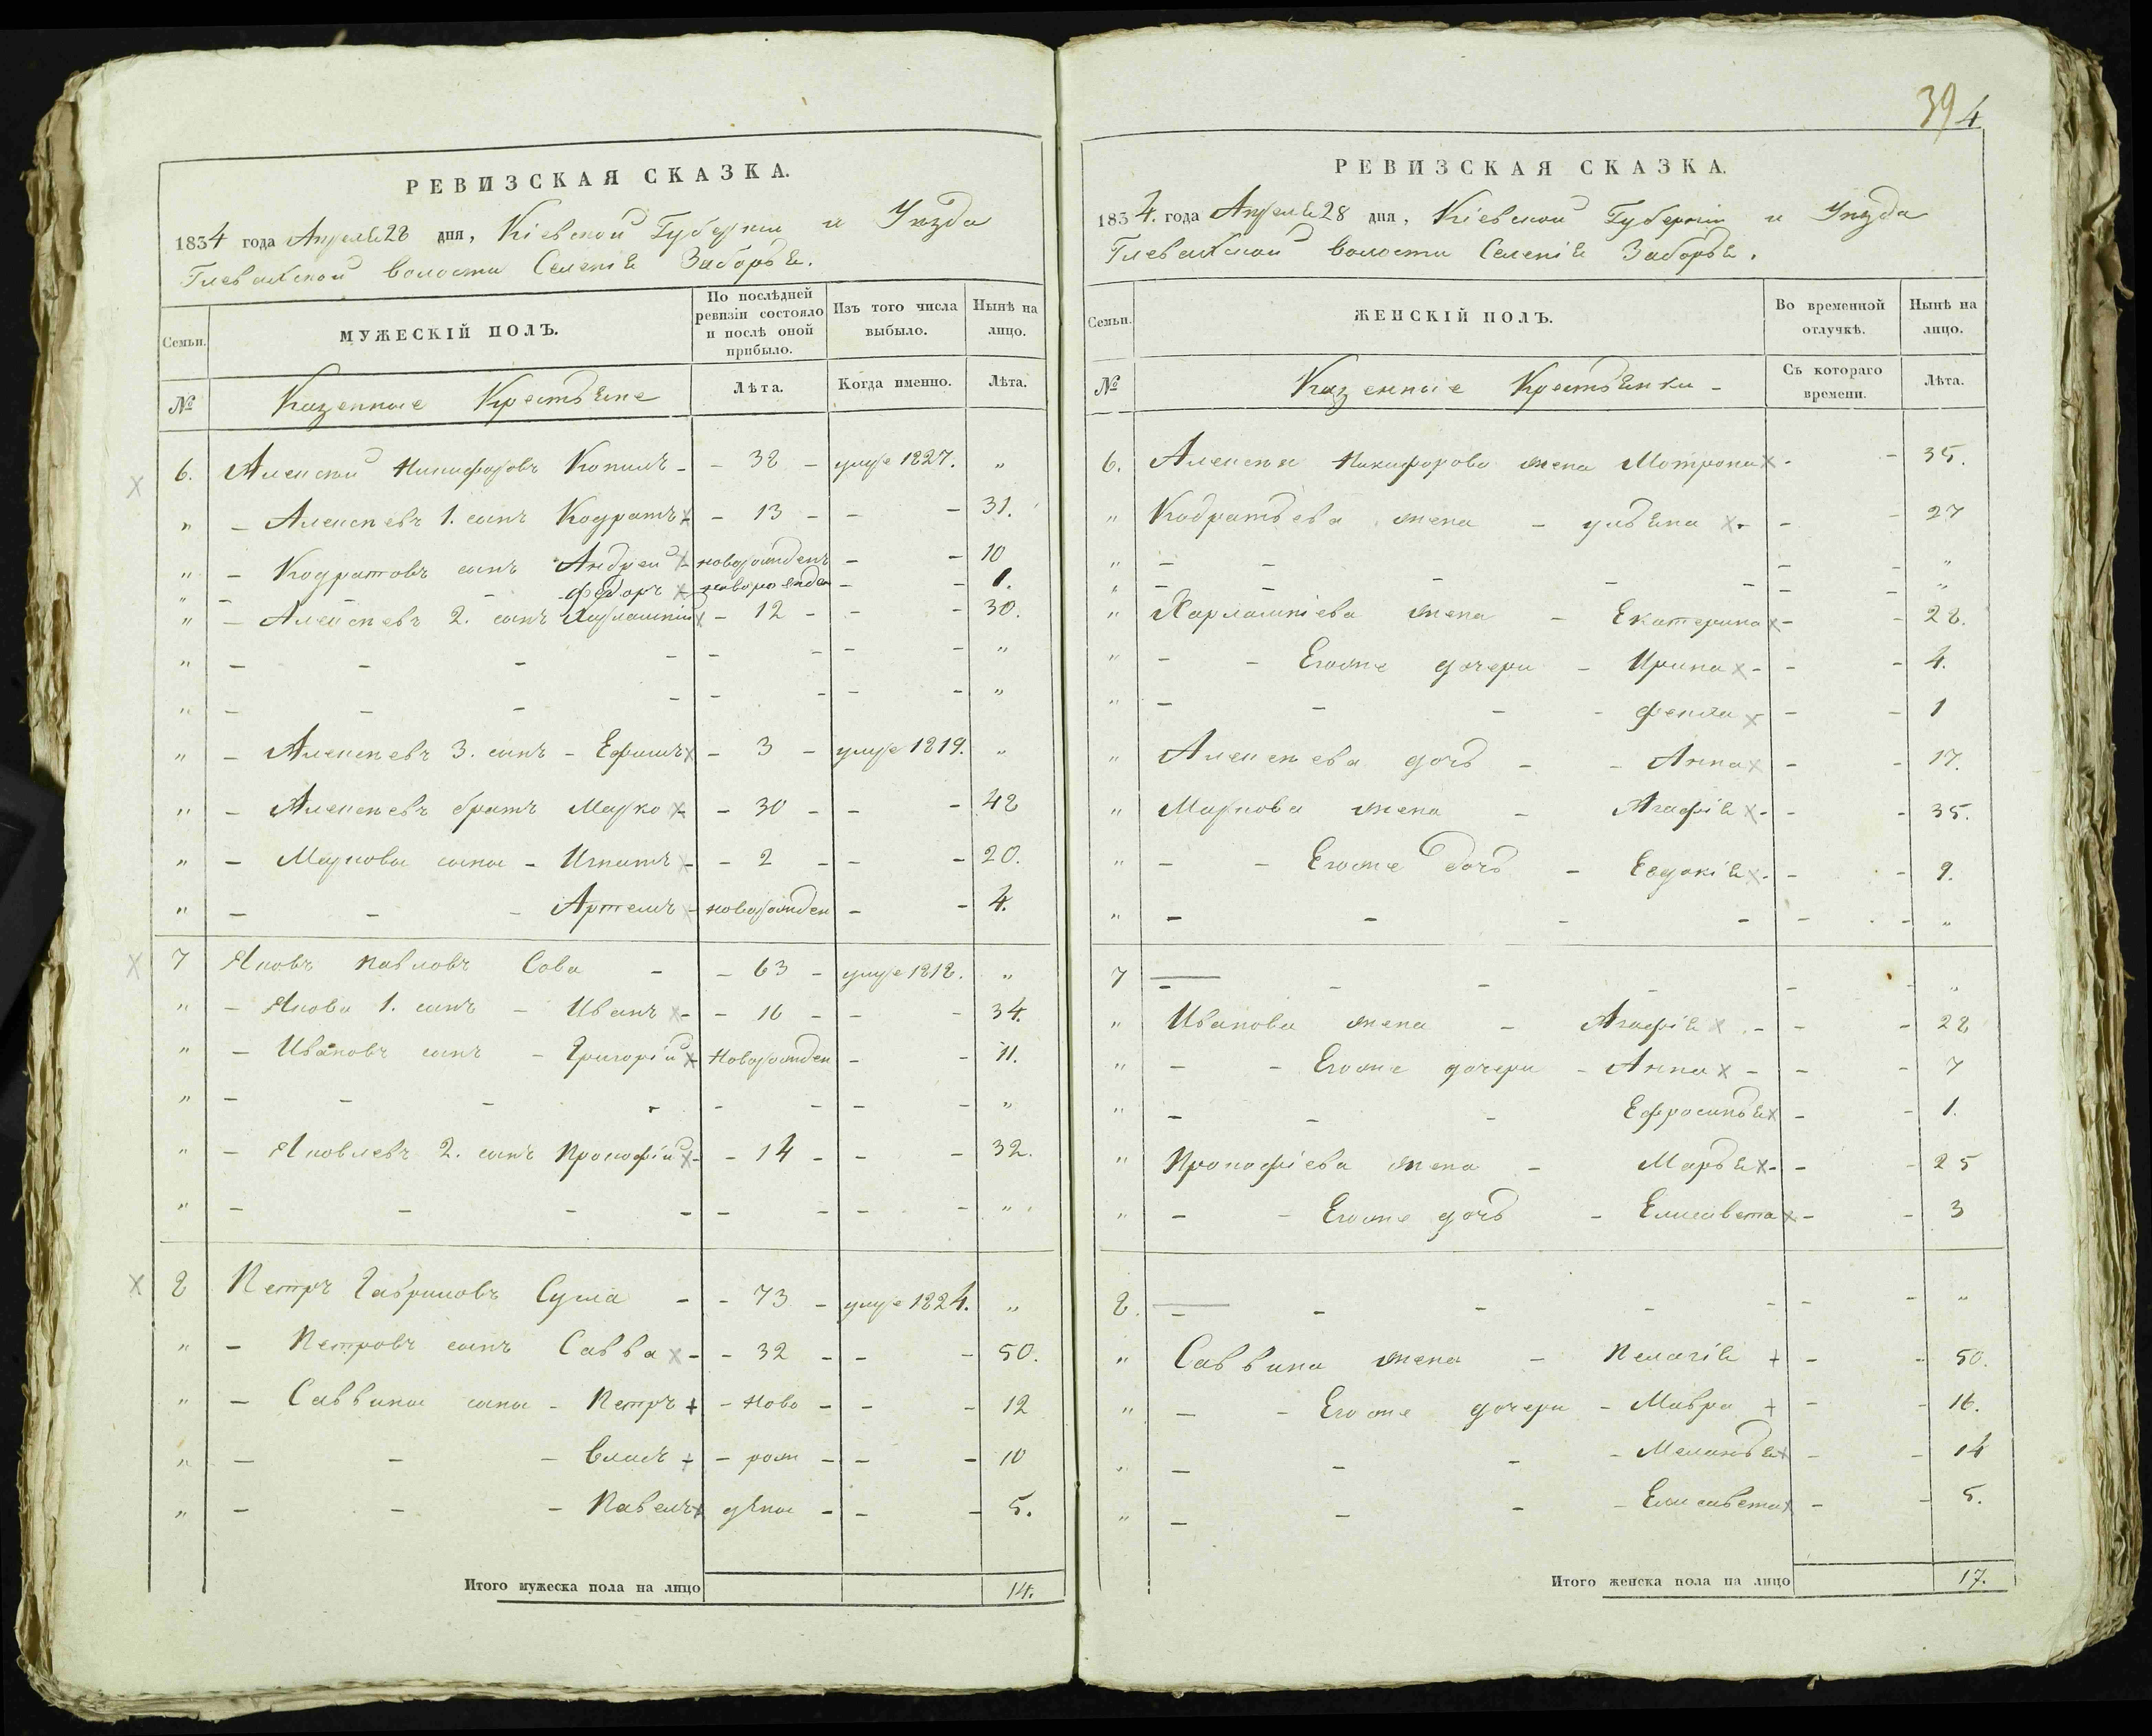 РЕВИЗСКАЯ СКАЗКА.
1834 года Апреля 28 дня, Кіевской Губерніи и Уѣзда
Глевахской волости Селенія Заборья.
Семьи.
МУЖЕСКІЙ ПОЛЪ.
По послѣдней ревизіи состояло и послѣ оной прибыло.
Изъ того числа выбыло.
Нынѣ на лицо.
№
Казенные Крестьяне
Лѣта.
Когда именно.
Лѣта.
6. Алексѣй Никифоровъ Копилъ - - 32 - умре 1827. "
" - Алексѣевъ 1. сынъ Кодратъ x - 13 - - - 31.
" - Кодратовъ сынъ Андрей x новорожденъ - - 10
" - - - Федоръ x новорожден - - 1.
" - Алексѣевъ 2. сынъ Харлампій x - 12 - - - 30.
" - - - - - - - - "
" - - - - - - - - "
" - Алексѣевъ 3. сынъ - Ефимъ x - 3 - умре 1819. "
" - Алексѣевъ братъ Марко x - 30 - - - 48
" - Марковы сыны - Игнатъ x - 2 - - - 20.
" - - - Артемъ x новорожден - - 4.
7 Яковъ Павловъ Сова - - 63 - умре 1818. "
" - Якова 1. сынъ - Иванъ x - - 16 - - - 34.
" - Ивановъ сынъ - Григорій x Новорожден - - 11.
" - - - - - - - - "
" - Яковлевъ 2. сынъ Прокофій x - 14 - - - 32.
" - - - - - - - - "
8 Петръ Гавриловъ Сула - - 73 - умре 1824. "
" - Петровъ сынъ Савва x - - 32 - - - 50.
" - Саввины сыны - Петръ + - Ново - - - 12
" - - - Власъ + - рож - - - 10
" - - - Павелъ x дѣны - - - 5.
Итого мужеска пола на лицо 14.
39 4
РЕВИЗСКАЯ СКАЗКА.
1834. года Апреля 28 дня, Кіевской Губерніи и Уѣзда
Глевахской волости Селенія Заборья.
Семьи.
ЖЕНСКІЙ ПОЛЪ.
Во временной отлучкѣ.
Нынѣ на лицо.
№
Казенные Крестьянки -
Съ котораго времени.
Лѣта.
6. Алексѣя Никифорова жена Мотрона x - - 35.
" Кодратьева жена - Ульяна x - - - 27
" - - - - - - - "
" - - - - - - - "
" Харлампіева жена - Екатерина x - - 28.
" - - Егоже дочери - Ирина x - - - 4.
" - - - - Фекла x - - 1
" Алексѣева дочь - - Анна x - - 17.
" Маркова жена - Агафія x - - - 35.
" - - Егоже дочь - Евдокія x - - - 9.
" - - - - - - "
7 - - - - - - "
" Иванова жена - Агафія x - - - 28
" - - Егоже дочери - Анна x - - - 7
" - - - Ефросинья x - - 1.
" Прокофіева жена - Марья x - - - 25
" - - Егоже дочь - Елисавета x - - 3
8. - - - - - - - "
" Саввина жена - Пелагія + - - 50.
" - - Егоже дочери - Мавра + - - 16.
" - - - - Меланья x - - 14
" - - - - Елисавета x - - 5.
Итого женска пола на лицо 17.